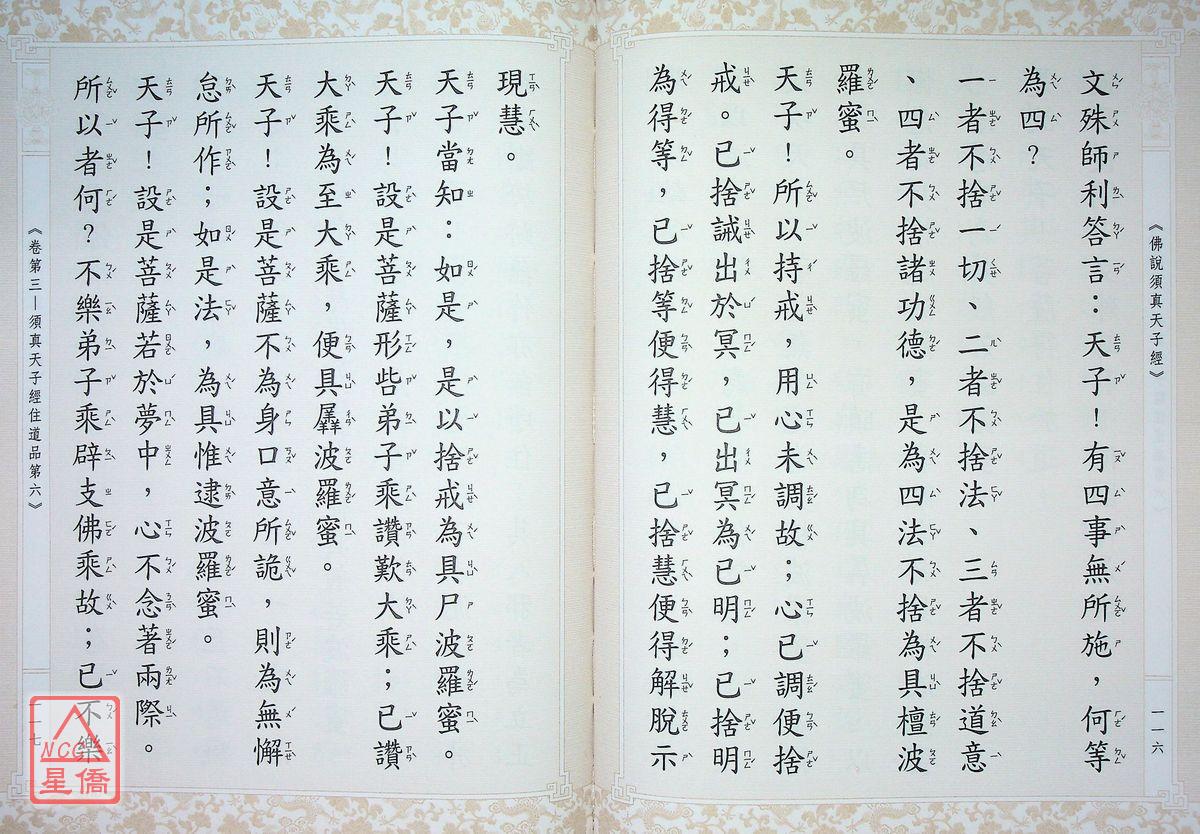 《佛說須真天子經》
一一六
文殊師利答言：天子！有四事無所施，何等
為四？
一者不捨一切、二者不捨法、三者不捨道意
、四者不捨諸功德，是為四法不捨為具檀波
羅蜜。
天子！所以持戒，用心未調故；心已調便捨
戒。已捨誡出於冥，已出冥為已明；已捨明
為得等，已捨等便得慧，已捨慧便得解脫示
現慧。
天子當知：如是，是以捨戒為具尸波羅蜜。
天子！設是菩薩形呰弟子乘讚歎大乘；已讚
大乘為至大乘，便具羼波羅蜜。
天子！設是菩薩不為身口意所詭，則為無懈
怠所作；如是法，為具惟逮波羅蜜。
天子！設是菩薩若於夢中，心不念著兩際。
所以者何？不樂弟子乘辟支佛乘故；已不樂
《卷第三—須真天子經住道品第六》
一一七
NCC
星僑